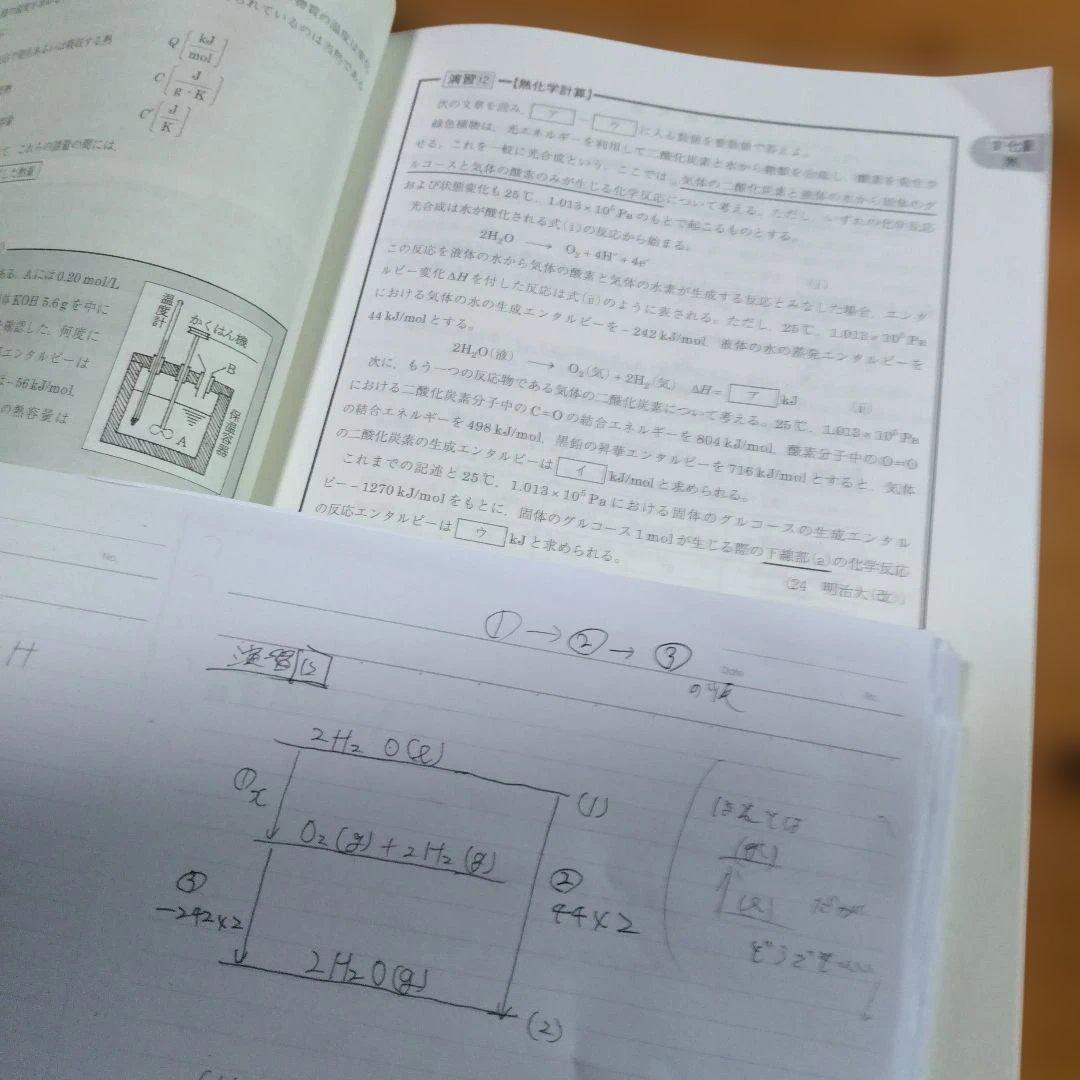 Q [kJ/mol]
C [J/g・K]
C' [J/K]
これらの諸量の間には,
ある. Aには0.20 mol/L
KOH 5.6gを中に
確認した. 何度に
エンタルピーは
-56kJ/mol,
の熱容量は
温度計
かくはん機
B
A
保温容器
演習12 【熱化学計算】
次の文章を読み, ア ～ ウ に入る数値を整数値で答えよ。
緑色植物は, 光エネルギーを利用して二酸化炭素と水から糖類を合成し, 酸素を発生さ
せる。これを一般に光合成という。ここでは(a)気体の二酸化炭素と液体の水から固体のグ
ルコースと気体の酸素のみが生じる化学反応について考える。ただし, いずれの化学反応
および状態変化も25℃, 1.013×10⁵Paのもとで起こるものとする。
光合成は水が酸化される式(i)の反応から始まる。
2H₂O ⟶ O₂+4H⁺+4e⁻ (i)
この反応を液体の水から気体の酸素と気体の水素が生成する反応とみなした場合, エンタ
ルピー変化ΔHを付した反応は式(ii)のように表される。ただし, 25℃, 1.013×10⁵Pa
における気体の水の生成エンタルピーを-242kJ/mol, 液体の水の蒸発エンタルピーを
44kJ/molとする。
2H₂O(液) ⟶ O₂(気)+2H₂(気) ΔH= ア kJ (ii)
次に, もう一つの反応物である気体の二酸化炭素について考える。25℃, 1.013×10⁵Pa
における二酸化炭素分子中のC=Oの結合エネルギーを804kJ/mol, 酸素分子中のO=O
の結合エネルギーを498kJ/mol, 黒鉛の昇華エンタルピーを716kJ/molとすると, 気体
の二酸化炭素の生成エンタルピーは イ kJ/molと求められる。
これまでの記述と25℃, 1.013×10⁵Paにおける固体のグルコースの生成エンタル
ピー-1270kJ/molをもとに, 固体のグルコース1molが生じる際の下線部(a)の化学反応
の反応エンタルピーは ウ kJと求められる。
(24 明治大(改))
No.
H
①→②→③
Date
No.
の順
演習12
2H₂O(l)
①x
(1)
O₂(g)+2H₂(g)
③
-242×2
②
44×2
2H₂O(g)
(2)
ほんとは
(g)
(l)
だが